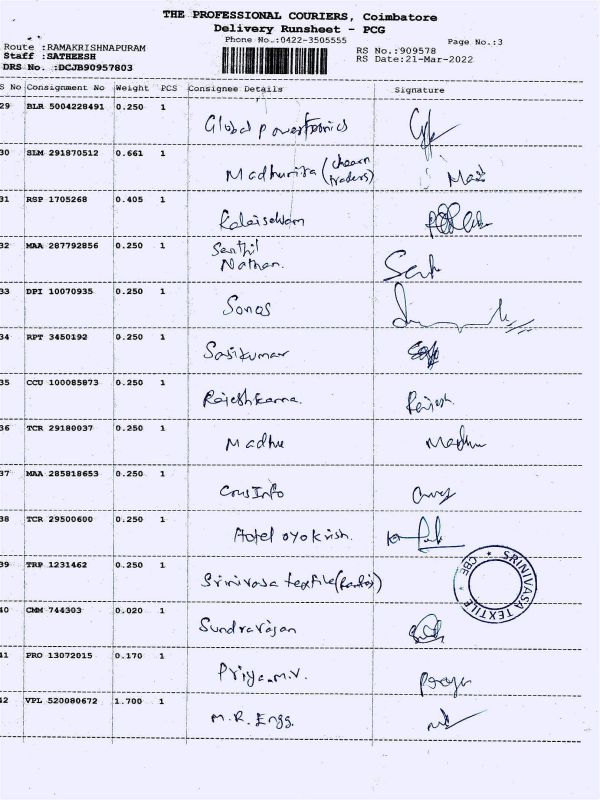 THE PROFESSIONAL COURIERS, Coimbatore
Delivery Runsheet - PCG
Phone No.:0422-3505555
Page No.:3
Route :RAMAKRISHNAPURAM
Staff :SATHEESH
DRS No. :DCJB90957803
RS No.:909578
RS Date:21-Mar-2022
S No Consignment No Weight PCS Consignee Details Signature
29 BLR 5004228491 0.250 1
Global powertronics
30 SLM 291870512 0.661 1
Madhumita (
traders)
31 RSP 1705268 0.405 1
Kalaiselvam
32 MAA 287792856 0.250 1
Senthil
Nathan.
33 DPI 10070935 0.250 1
Sonas
34 RPT 3450192 0.250 1
Sasikumar
35 CCU 100085873 0.250 1
Rajeshkanna. Rajesh.
36 TCR 29180037 0.250 1
Madhu Madhu
37 MAA 285818653 0.250 1
ConsInfo
38 TCR 29500600 0.250 1
Hotel oyo krish.
39 TRP 1231462 0.250 1
Srinivasa textile
SRINIVASA TEXTILE
* CBE *
40 CMM 744303 0.020 1
Sundrarajan
41 PRO 13072015 0.170 1
Priya.M.V. Priya
42 VPL 520080672 1.700 1
M.R. Engg.